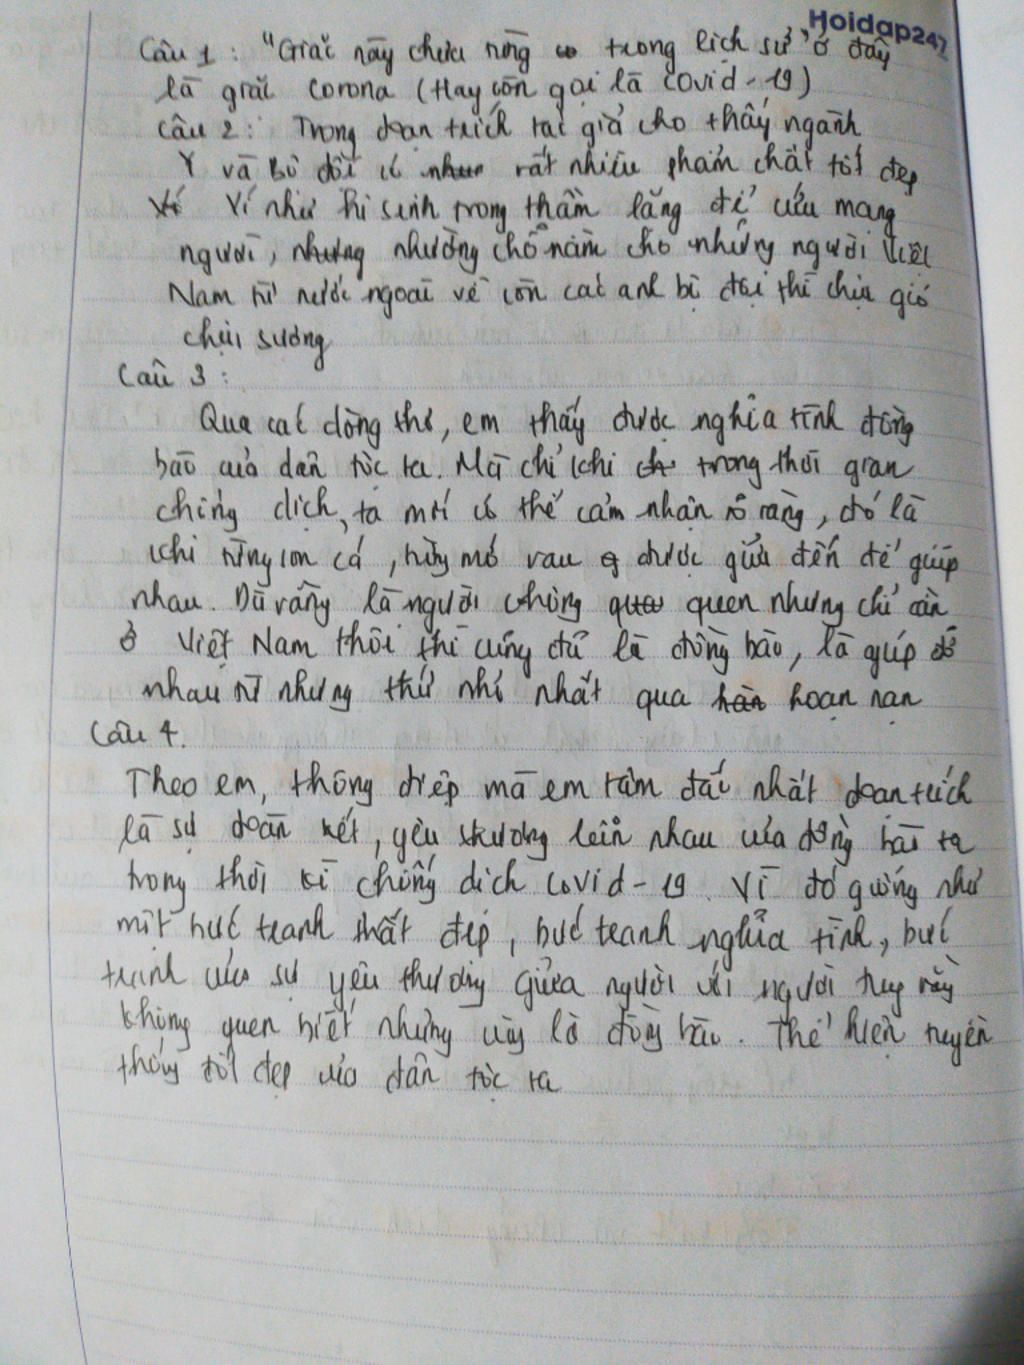 Hoidap247
Câu 1 : "Giặc này chưa từng có trong lịch sử" ở đây
là giặc corona (Hay còn gọi là covid-19)
Câu 2 : Trong đoạn trích tác giả cho thấy ngành
Y và Bộ đội có rất nhiều phẩm chất tốt đẹp
Ví như hi sinh trong thầm lặng để cứu mạng
người, nhường chỗ nằm cho những người Việt
Nam từ nước ngoài về còn các anh bộ đội thì chịu gió
chịu sương
Câu 3 :
Qua các dòng thơ, em thấy được nghĩa tình đồng
bào của dân tộc ta. Mà chỉ khi trong thời gian
chống dịch, ta mới có thể cảm nhận rõ ràng, đó là
khi từng con cá, từng mớ rau được gửi đến để giúp
nhau. Dù rằng là người không quen nhưng chỉ cần
ở Việt Nam thôi thì cũng đã là đồng bào, là giúp đỡ
nhau từ nhưng thứ nhỏ nhất qua hoạn nạn
Câu 4.
Theo em, thông điệp mà em tâm đắc nhất đoạn trích
là sự đoàn kết, yêu thương lẫn nhau của đồng bào ta
trong thời kì chống dịch covid-19. Vì đó giường như
một bức tranh thất đẹp, bức tranh nghĩa tình, bức
tranh của sự yêu thương giữa người với người tuy rằng
không quen biết nhưng cũng là đồng bào. Thể hiện truyền
thống tốt đẹp của dân tộc ta